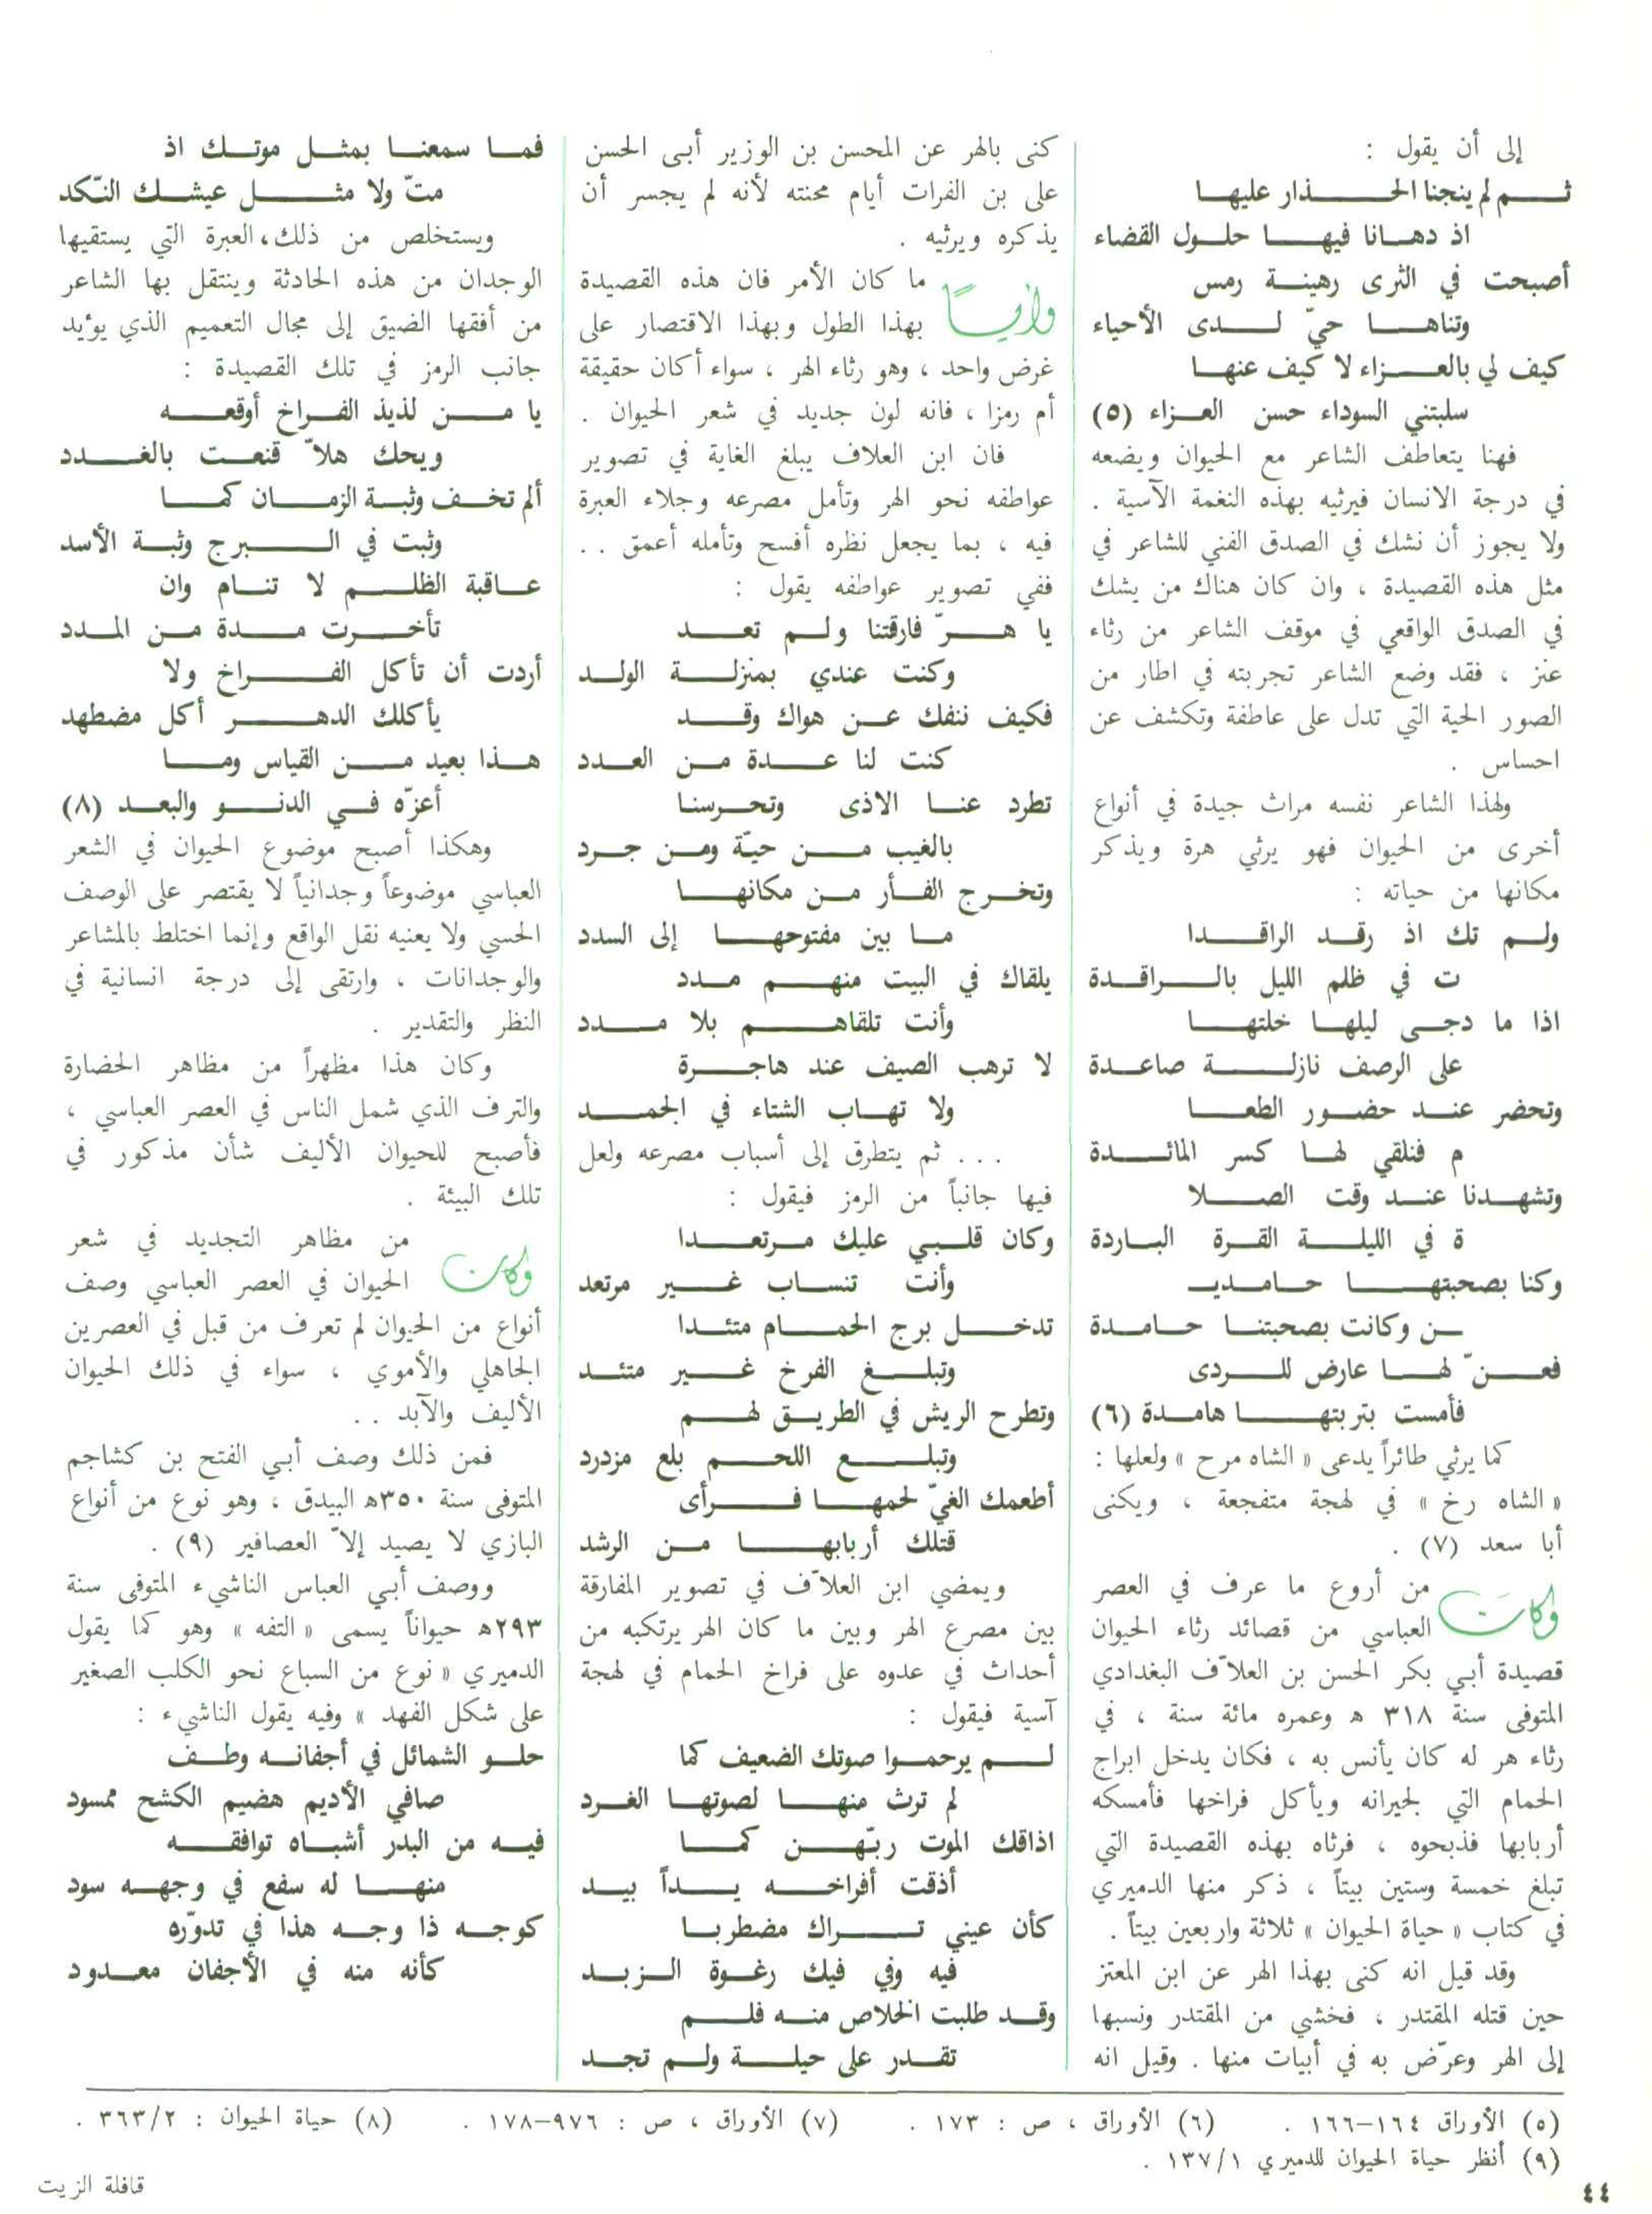 إلى أن يقول :
ثم لم ينجنا الحذار عليها
اذ دهانا فيها حلول القضاء
أصبحت في الثرى رهينة رمس
وتناها حيّ لدى الأحياء
كيف لي بالعزاء لا كيف عنها
سلبتني السوداء حسن العزاء (٥)
فهنا يتعاطف الشاعر مع الحيوان ويضعه
في درجة الانسان فيرثيه بهذه النغمة الآسية .
ولا يجوز أن نشك في الصدق الفني للشاعر في
مثل هذه القصيدة ، وان كان هناك من يشك
في الصدق الواقعي في موقف الشاعر من رثاء
عنز ، فقد وضع الشاعر تجربته في اطار من
الصور الحية التي تدل على عاطفة وتكشف عن
احساس .
ولهذا الشاعر نفسه مراث جيدة في أنواع
أخرى من الحيوان فهو يرثي هرة ويذكر
مكانها من حياته :
ولم تك اذ رقد الراقدا
ت في ظلم الليل بالراقدة
اذا ما دجى ليلها خلتها
على الرصف نازلة صاعدة
وتحضر عند حضور الطعا
م فنلقي لها كسر المائدة
وتشهدنا عند وقت الصلا
ة في الليلة القرة الباردة
وكنا بصحبتها حامديـ
ـن وكانت بصحبتنا حامدة
فعنّ لها عارض للردى
فأمست بتربتها هامدة (٦)
كما يرثي طائراً يدعى « الشاه مرح » ولعلها :
« الشاه رخ » في لهجة متفجعة ، ويكنى
أبا سعد (٧) .
وكان من أروع ما عرف في العصر
العباسي من قصائد رثاء الحيوان
قصيدة أبي بكر الحسن بن العلاّف البغدادي
المتوفى سنة ٣١٨ ه وعمره مائة سنة ، في
رثاء هر له كان يأنس به ، فكان يدخل ابراج
الحمام التي لجيرانه ويأكل فراخها فأمسكه
أربابها فذبحوه ، فرثاه بهذه القصيدة التي
تبلغ خمسة وستين بيتاً ، ذكر منها الدميري
في كتاب « حياة الحيوان » ثلاثة واربعين بيتاً .
وقد قيل انه كنى بهذا الهر عن ابن المعتز
حين قتله المقتدر ، فخشي من المقتدر ونسبها
إلى الهر وعرّض به في أبيات منها . وقيل انه
كنى بالهر عن المحسن بن الوزير أبى الحسن
على بن الفرات أيام محنته لأنه لم يجسر أن
يذكره ويرثيه .
وأياً ما كان الأمر فان هذه القصيدة
بهذا الطول وبهذا الاقتصار على
غرض واحد ، وهو رثاء الهر ، سواء أكان حقيقة
أم رمزا ، فانه لون جديد في شعر الحيوان .
فان ابن العلاف يبلغ الغاية في تصوير
عواطفه نحو الهر وتأمل مصرعه وجلاء العبرة
فيه ، بما يجعل نظره أفسح وتأمله أعمق ..
ففي تصوير عواطفه يقول :
يا هرّ فارقتنا ولم تعد
وكنت عندي بمنزلة الولد
فكيف ننفك عن هواك وقد
كنت لنا عدة من العدد
تطرد عنا الاذى وتحرسنا
بالغيب من حيّة ومن جرد
وتخرج الفأر من مكانها
ما بين مفتوحها إلى السدد
يلقاك في البيت منهم مدد
وأنت تلقاهم بلا مدد
لا ترهب الصيف عند هاجرة
ولا تهاب الشتاء في الجمد
... ثم يتطرق إلى أسباب مصرعه ولعل
فيها جانباً من الرمز فيقول :
وكان قلبي عليك مرتعدا
وأنت تنساب غير مرتعد
تدخل برج الحمام متئدا
وتبلغ الفرخ غير متئد
وتطرح الريش في الطريق لهم
وتبلع اللحم بلع مزدرد
أطعمك الغيّ لحمها فرأى
قتلك أربابها من الرشد
ويمضي ابن العلاّف في تصوير المفارقة
بين مصرع الهر وبين ما كان الهر يرتكبه من
أحداث في عدوه على فراخ الحمام في لهجة
آسية فيقول :
لم يرحموا صوتك الضعيف كما
لم ترث منها لصوتها الغرد
اذاقك الموت ربّهن كما
أذقت أفراخه يداً بيد
كأن عيني تراك مضطربا
فيه وفي فيك رغوة الزبد
وقد طلبت الخلاص منه فلم
تقدر على حيلة ولم تجد
فما سمعنا بمثل موتك اذ
متّ ولا مثل عيشك النّكد
ويستخلص من ذلك، العبرة التي يستقيها
الوجدان من هذه الحادثة وينتقل بها الشاعر
من أفقها الضيق إلى مجال التعميم الذي يؤيد
جانب الرمز في تلك القصيدة :
يا من لذيذ الفراخ أوقعه
ويحك هلاّ قنعت بالغدد
ألم تخف وثبة الزمان كما
وثبت في البرج وثبة الأسد
عاقبة الظلم لا تنام وان
تأخرت مدة من المدد
أردت أن تأكل الفراخ ولا
يأكلك الدهر أكل مضطهد
هذا بعيد من القياس وما
أعزّه في الدنو والبعد (٨)
وهكذا أصبح موضوع الحيوان في الشعر
العباسي موضوعاً وجدانياً لا يقتصر على الوصف
الحسي ولا يعنيه نقل الواقع وإنما اختلط بالمشاعر
والوجدانات ، وارتقى إلى درجة انسانية في
النظر والتقدير .
وكان هذا مظهراً من مظاهر الحضارة
والترف الذي شمل الناس في العصر العباسي ،
فأصبح للحيوان الأليف شأن مذكور في
تلك البيئة .
وكان من مظاهر التجديد في شعر
الحيوان في العصر العباسي وصف
أنواع من الحيوان لم تعرف من قبل في العصرين
الجاهلي والأموي ، سواء في ذلك الحيوان
الأليف والآبد ..
فمن ذلك وصف أبي الفتح بن كشاجم
المتوفى سنة ٣٥٠ه البيدق ، وهو نوع من أنواع
البازي لا يصيد إلاّ العصافير (٩) .
ووصف أبي العباس الناشيء المتوفى سنة
٢٩٣ه حيواناً يسمى « التفه » وهو كما يقول
الدميري « نوع من السباع نحو الكلب الصغير
على شكل الفهد » وفيه يقول الناشيء :
حلو الشمائل في أجفانه وطف
صافي الأديم هضيم الكشح ممسود
فيه من البدر أشباه توافقه
منها له سفع في وجهه سود
كوجه ذا وجه هذا في تدوّره
كأنه منه في الأجفان معدود
(٥) الأوراق ١٦٤–١٦٦ . (٦) الأوراق ، ص : ١٧٣ . (٧) الأوراق ، ص : ٩٧٦–١٧٨ . (٨) حياة الحيوان : ٣٦٣/٢ .
(٩) أنظر حياة الحيوان للدميري ١٣٧/١ .
٤٤
قافلة الزيت